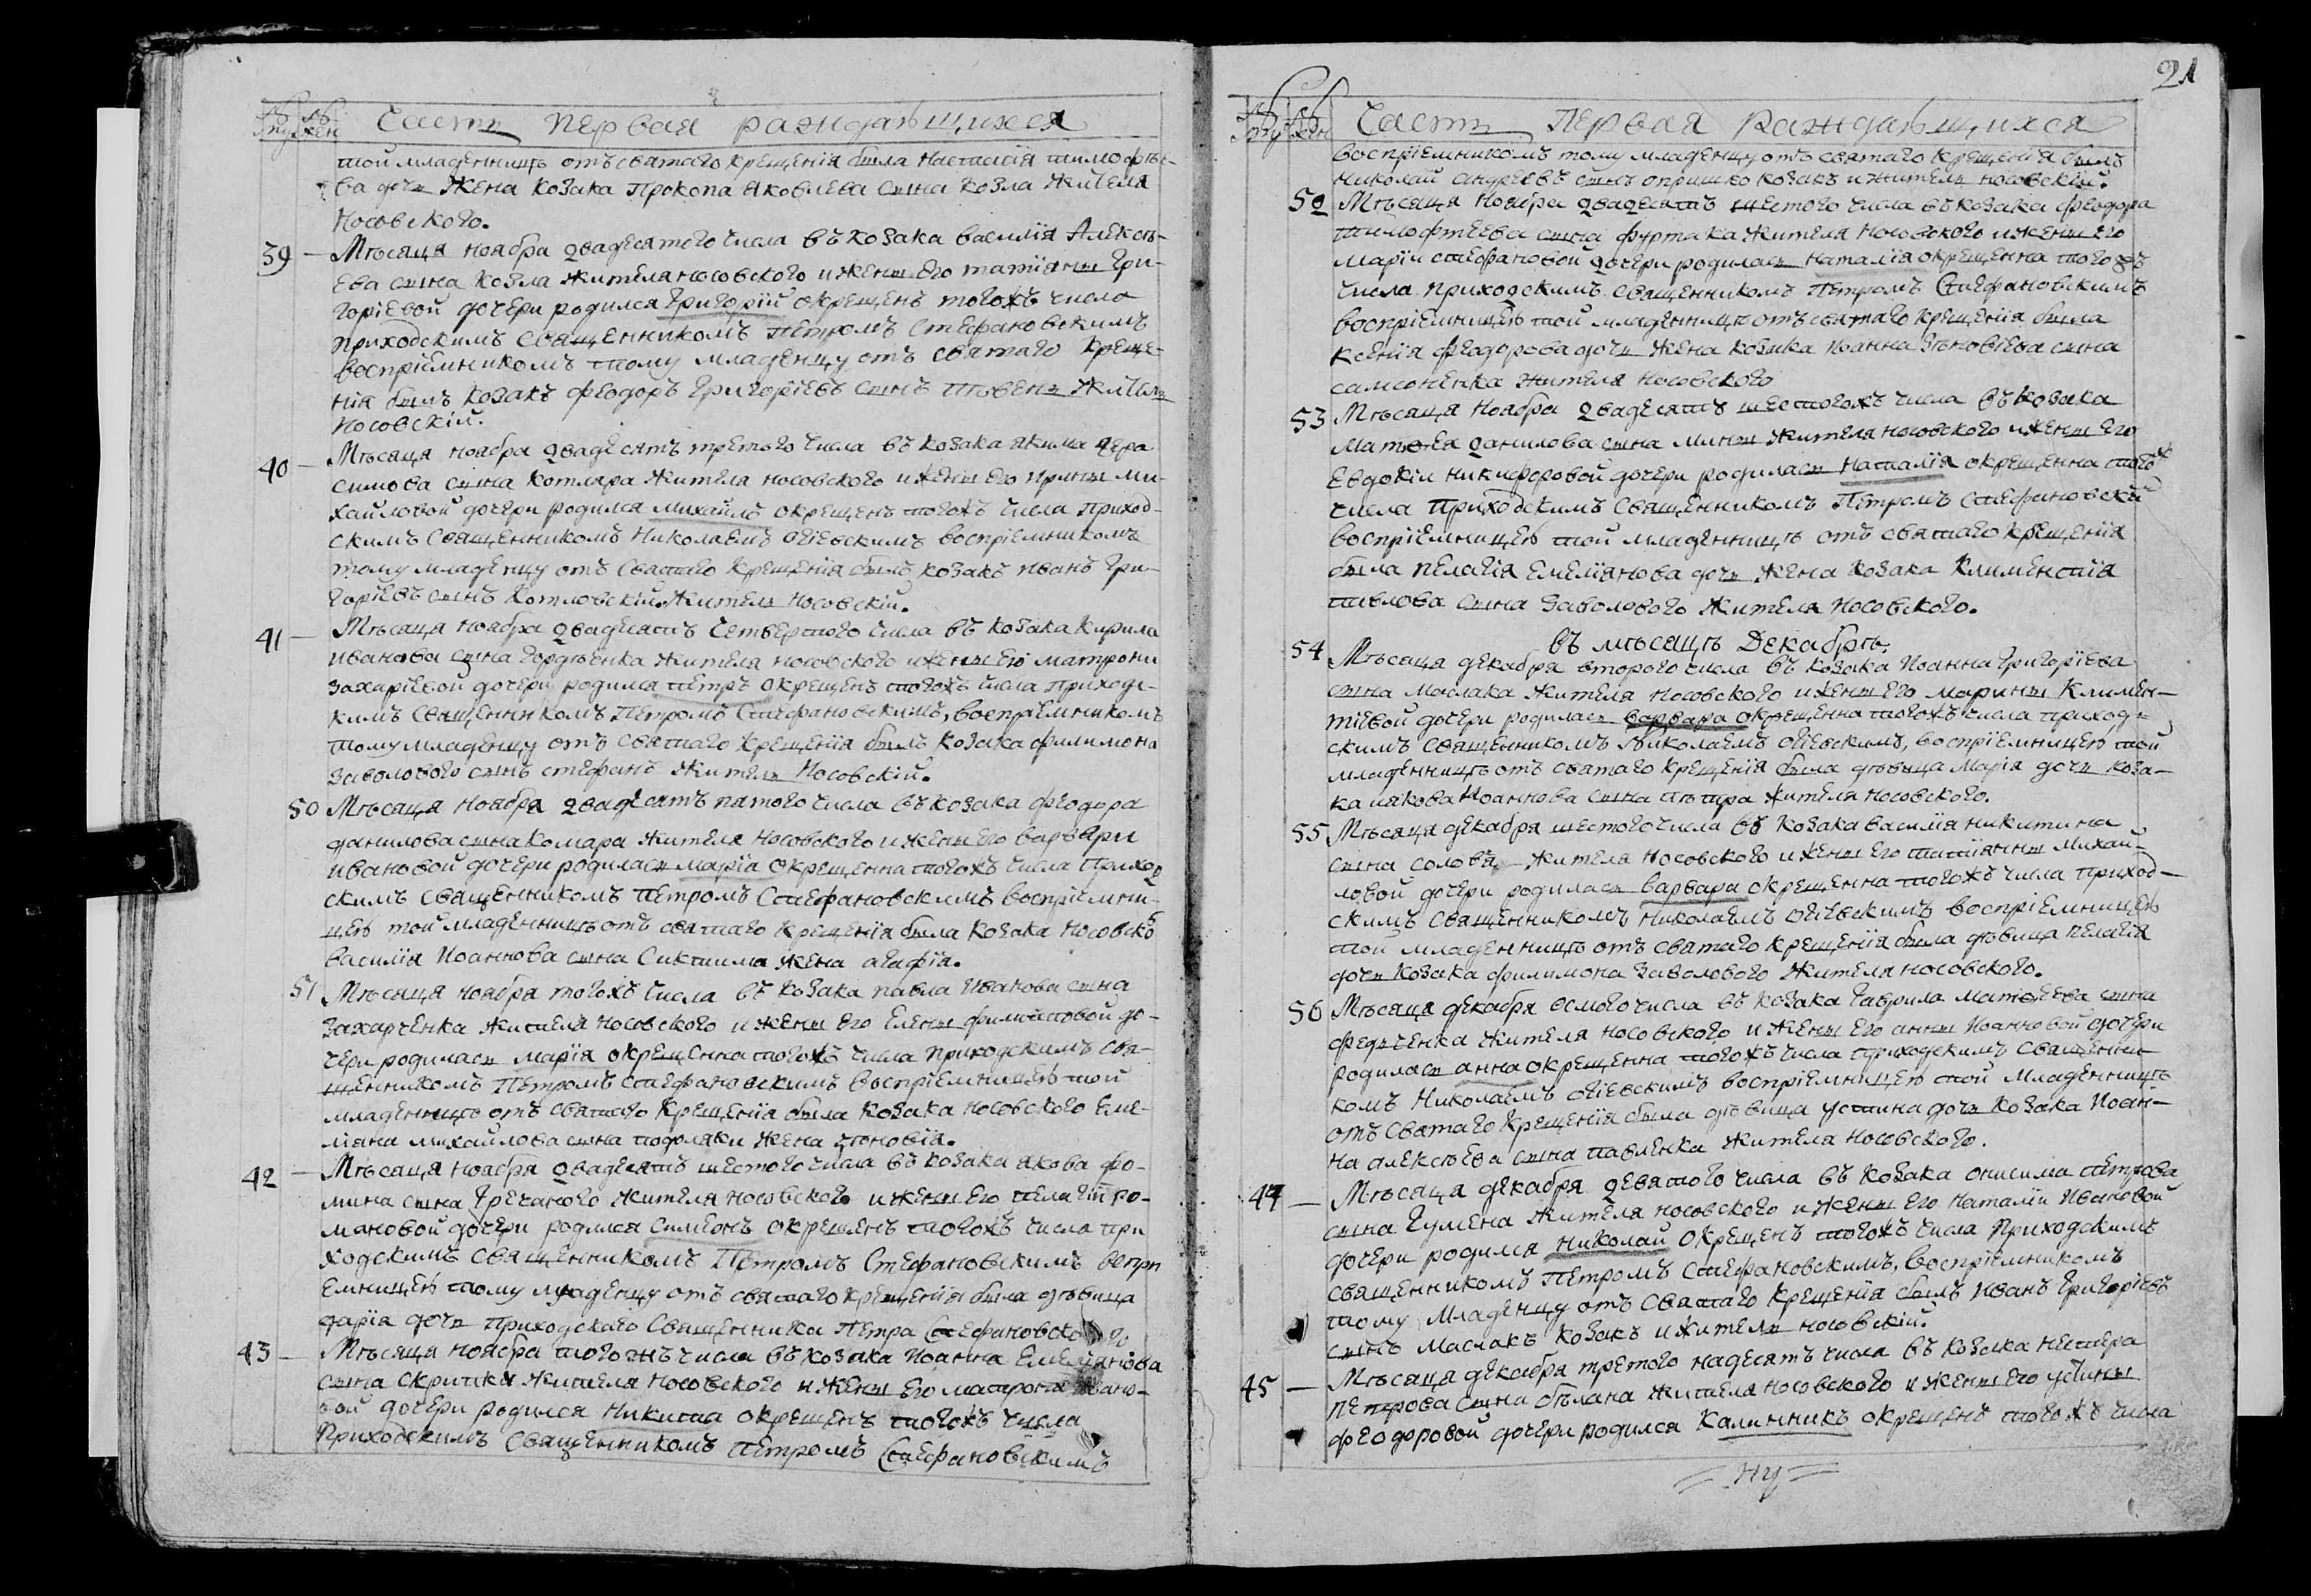 Часть Первая раждающихся
той младенницѣ отъ святаго крещенія была Настасія тимофѣе-
ва дочь жена козака Прокопа Яковлева сына Козла жителя
Носовского.
39 — Мѣсяца ноября двадесятого числа въ козака василія Алексѣ-
ева сына козла жителя носовского и жены его татіяны Гри-
горіевой дочери родился Григорій окрещенъ тогожъ числа
приходскимъ священникомъ Петромъ Стефановскимъ
воспріемникомъ тому младенцу отъ святаго креще-
нія былъ козакъ феодоръ Григоріевъ сынъ житель
Носовскій.
40 — Мѣсяца ноября двадесятъ третого числа въ козака якима гера
симова сына котляра жителя носовского и жены его ирины ми-
хайловой дочери родился михаилъ окрещенъ тогожъ числа приход-
скимъ священникомъ Николаемъ огіевскимъ воспріемникомъ
тому младенцу отъ святаго крещенія былъ козакъ иванъ Гри-
горіевъ сынъ котловскій житель носовскій.
41 — Мѣсяца ноября двадесятъ четвертого числа въ козака кирила
иванова сына гордѣенка жителя носовского и жены его матрони
захаріевой дочери родился петръ окрещенъ тогожъ числа приходс-
кимъ священникомъ Петромъ Стефановскимъ, воспріемникомъ
тому младенцу отъ святаго крещенія былъ козака филимона
заволового сынъ стефанъ житель Носовскій.
50 Мѣсяца ноября двадесятъ пятого числа въ козака феодора
данилова сына комара жителя носовского и жены его варвари
ивановой дочери родилась марія окрещенна тогожъ числа приход
скимъ священникомъ Петромъ Стефановскимъ воспріемни-
цею той младенницѣ отъ святаго крещенія была козака носовско
василія Иоаннова сына жена агафія.
51 Мѣсяца ноября тогожъ числа въ козака павла иванова сына
захарченка жителя носовского и жены его елены филиповой до-
чери родилась марія окрещенна тогожъ числа приходскимъ свя-
щенникомъ Петромъ стефановскимъ воспріемницею той
младенницѣ отъ святаго крещенія была козака носовского Еме-
ляна михайлова сына подоляки жена зѣновія.
42 — Мѣсяца ноября двадесятъ шестого числа въ козака якова фо-
мина сына Гречаного жителя носовского и жены его пелагіи ро-
мановой дочери родился симеонъ окрещенъ тогожъ числа при
ходскимъ священникомъ Петромъ Стефановскимъ воспри
емницею тому младенцу отъ святаго крещенія была дѣвица
дарія дочь приходского священника петра Стефановского
43 — Мѣсяца ноября тогожъ числа въ козака Иоанна Емеліянова
сына скрипки жителя носовского и жены его матрони ивано-
вой дочери родился никита окрещенъ тогожъ числа
приходскимъ священникомъ петромъ Стефановскимъ
21
Часть Первая Раждающихся
воспріемникомъ тому младенцу отъ святаго крещенія былъ
николай андреевъ сынъ опришко козакъ и житель носовскій.
52 Мѣсяца ноября двадесятъ шестого числа въ козака феодора
тимофтеева сына фуртака жителя носовского и жены его
маріи стефановой дочери родилась наталія окрещенна тогожъ
числа приходскимъ священникомъ Петромъ Стефановскимъ
воспріемницею той младенницѣ отъ святаго крещенія была
ксенія феодорова дочь жена козака иоанна зѣновіева сына
самсоненка жителя носовского
53 Мѣсяца ноября двадесятъ шестогожъ числа въ козака
матѳея данилова сына мины жителя носовского и жены его
Евдокіи никифоровой дочери родилась наталія окрещенна тогож
числа приходскимъ священникомъ Петромъ стефановски
воспріемницею той младенницѣ отъ святаго крещенія
была пелагія емеліянова дочь жена козака климентія
павлова сына заволового жителя носовского.
въ мѣсяцѣ Декабрѣ.
54 Мѣсяца декабря второго числа въ козака Иоанна Григоріева
сына маслака жителя носовского и жены его марины климен-
тіевой дочери родилась варвара окрещенна тогожъ числа приход-
скимъ священникомъ Николаемъ огіевскимъ, воспріемницею той
младенницѣ отъ святаго крещенія была дѣвица марія дочь коза-
ка иякова Иоаннова сына жителя носовского.
55 Мѣсяца декабря шестого числа въ козака василія никитина
сына соловя, жителя носовского и жены его татіянны михай-
ловой дочери родилась варвара окрещенна тогожъ числа приход-
скимъ священникомъ николаемъ огіевскимъ воспріемницею
той младенницѣ отъ святаго крещенія была дѣвица пелагія
дочь козака филимона заволового жителя носовского.
56 Мѣсяца декабря осмого числа въ козака гаврила матвеева сына
федченка жителя носовского и жены его анны Иоанновой дочери
родилась анна окрещенна тогожъ числа приходскимъ священни-
комъ Николаемъ огіевскимъ воспріемницею той младенницѣ
отъ святаго крещенія была дѣвица устина дочь козака Иоан-
на алексѣева сына павленка жителя носовского.
44 — Мѣсяца декабря девятого числа въ козака онисима петрова
сына Гумена жителя носовского и жены его наталіи ивановой
дочери родился николай окрещенъ тогожъ числа приходскимъ
священникомъ Петромъ стефановскимъ, воспріемникомъ
тому младенцу отъ святаго крещенія былъ иванъ Григоріевъ
сынъ маслакъ козакъ и житель носовскій.
45 — Мѣсяца декабря третого надесятъ числа въ козака
петрова сына бѣлана жителя носовского и жены его устины
феодоровой дочери родился калинникъ окрещенъ тогожъ числа